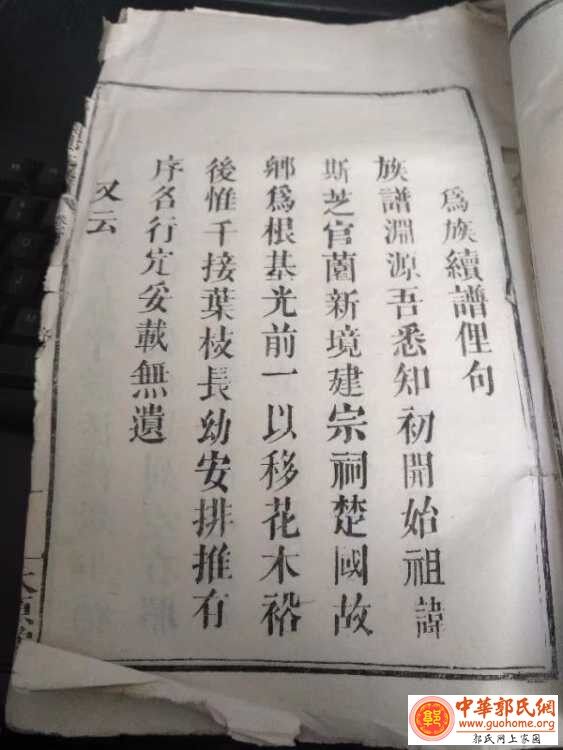 爲族續譜俚句
族譜淵源吾悉知初開始祖諱
斯芝官薗新境建宗祠楚國故
鄉爲根基光前一以移花木裕
後惟千接葉枝長幼安排推有
序各行㝎妥載無遺
又云
中華郭氏網
www.guohome.org
郭氏网上家园